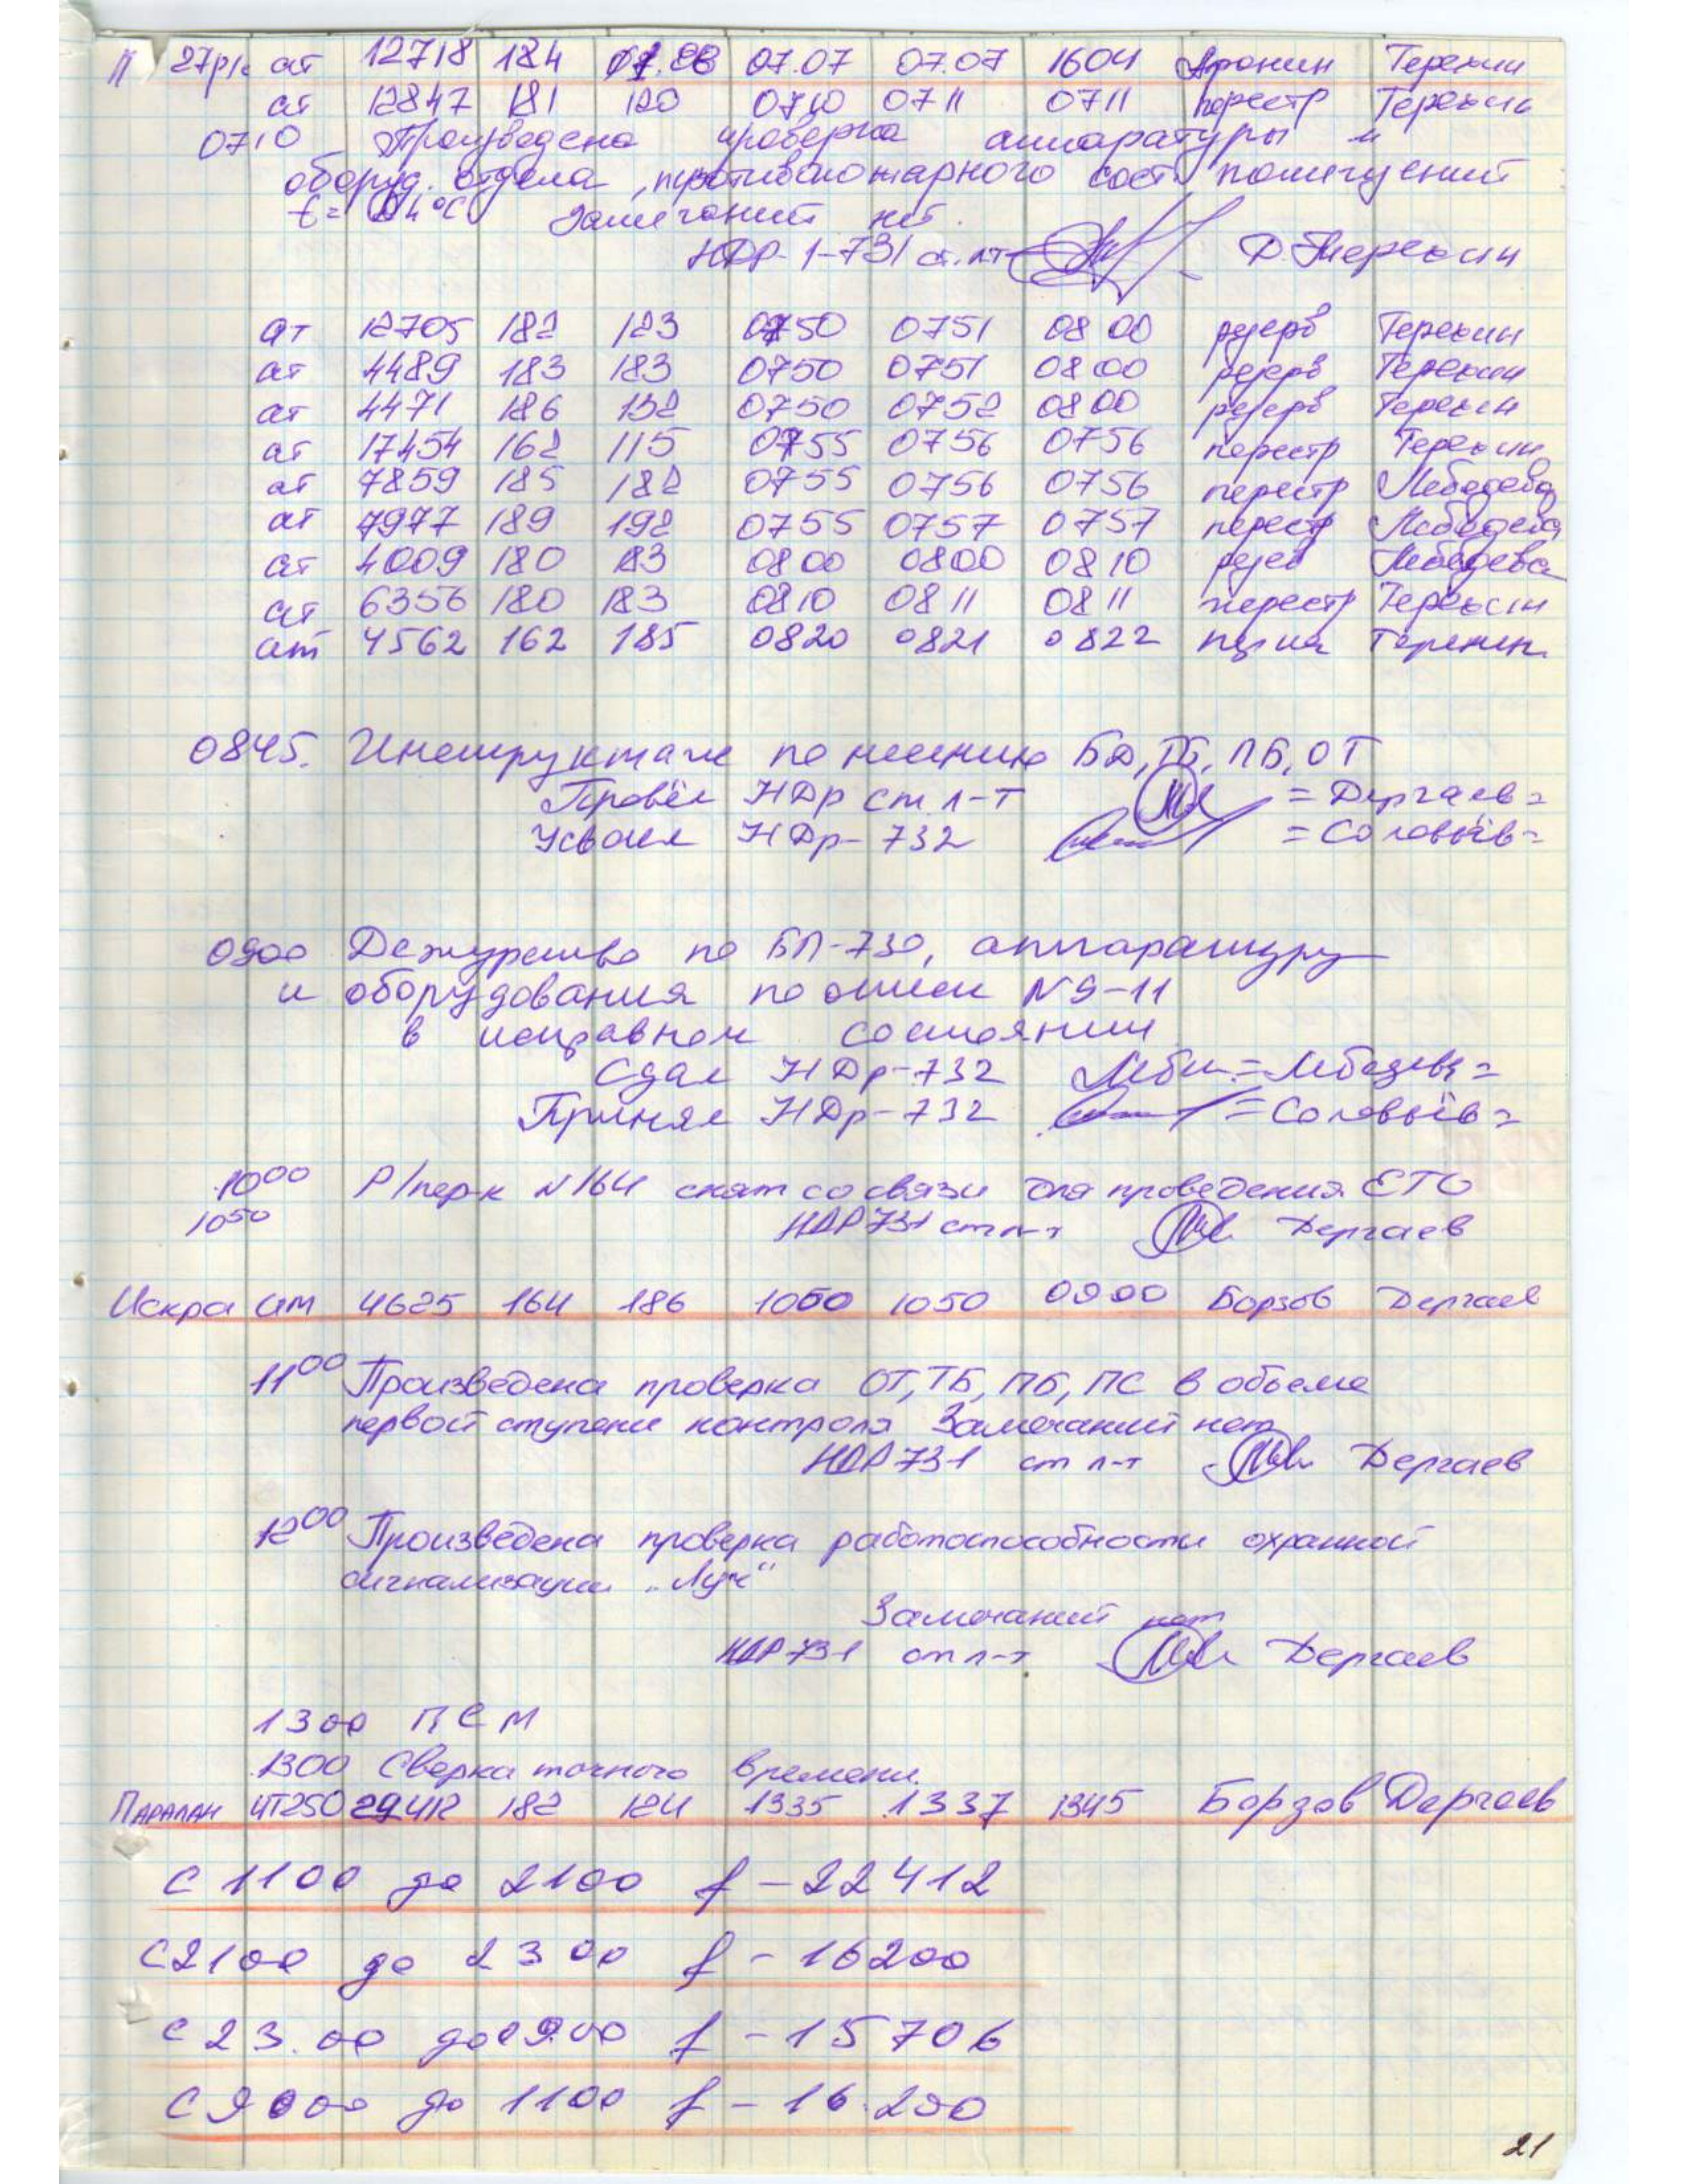 27р/с ат 12718 184 07.07 07.07 1604 Аронин Терехин
ат 12847 181 120 0710 0711 0711 перестр Терехин
0710 Произведена проверка аппаратуры и
оборуд. отдела, противопожарного сост. помещений
t= 24°C Замечаний нет.
НДР-1-731 ст. л-т Д. Терехин
ат 12705 182 123 0750 0751 0800 резерв Терехин
ат 4489 183 183 0750 0751 0800 резерв Терехин
ат 4471 186 132 0750 0752 0800 резерв Терехин
ат 17454 162 115 0755 0756 0756 перестр Терехин
ат 7859 185 182 0755 0756 0756 перестр Лебедева
ат 7977 189 192 0755 0757 0757 перестр Лебедева
ат 4009 180 183 0800 0800 0810 резев Лебедева
ат 6356 180 183 0810 0811 0811 перестр Терехин
ат 4562 162 185 0820 0821 0822 Терехин
0845. Инструктаж по несению БД, ТБ, ПБ, ОТ
Провёл НДр ст. л-т = Дергаев =
Усвоил НДр-732 = Соловьёв =
0900 Дежурство по БП-730, аппаратуру
и оборудования по описи N 9-11
в исправном состоянии
Сдал НДр-732 = Лебедева =
Принял НДр-732 = Соловьёв =
1000 Р/пер-к N164 снят со связи для проведения ЕТО
1050 НДР 731 ст л-т Дергаев
Искра ат 4625 164 186 1050 1050 0900 Борзов Дергаев
1100 Произведена проверка ОТ, ТБ, ПБ, ПС в объеме
первой ступени контроля Замечаний нет
НДР 731 ст л-т Дергаев
1200 Произведена проверка работоспособности охранной
сигнализации „Луч“
Замечаний нет
НДР 731 ст л-т Дергаев
1300 ПСМ
1300 Сверка точного времени.
Паралан ЧТ250 182 124 1335 1337 1345 Борзов Дергаев
С 1100 до 2100 f - 22412
С 2100 до 2300 f - 16200
С 23.00 до 09.00 f - 15706
С 9000 до 1100 f - 16.200
21